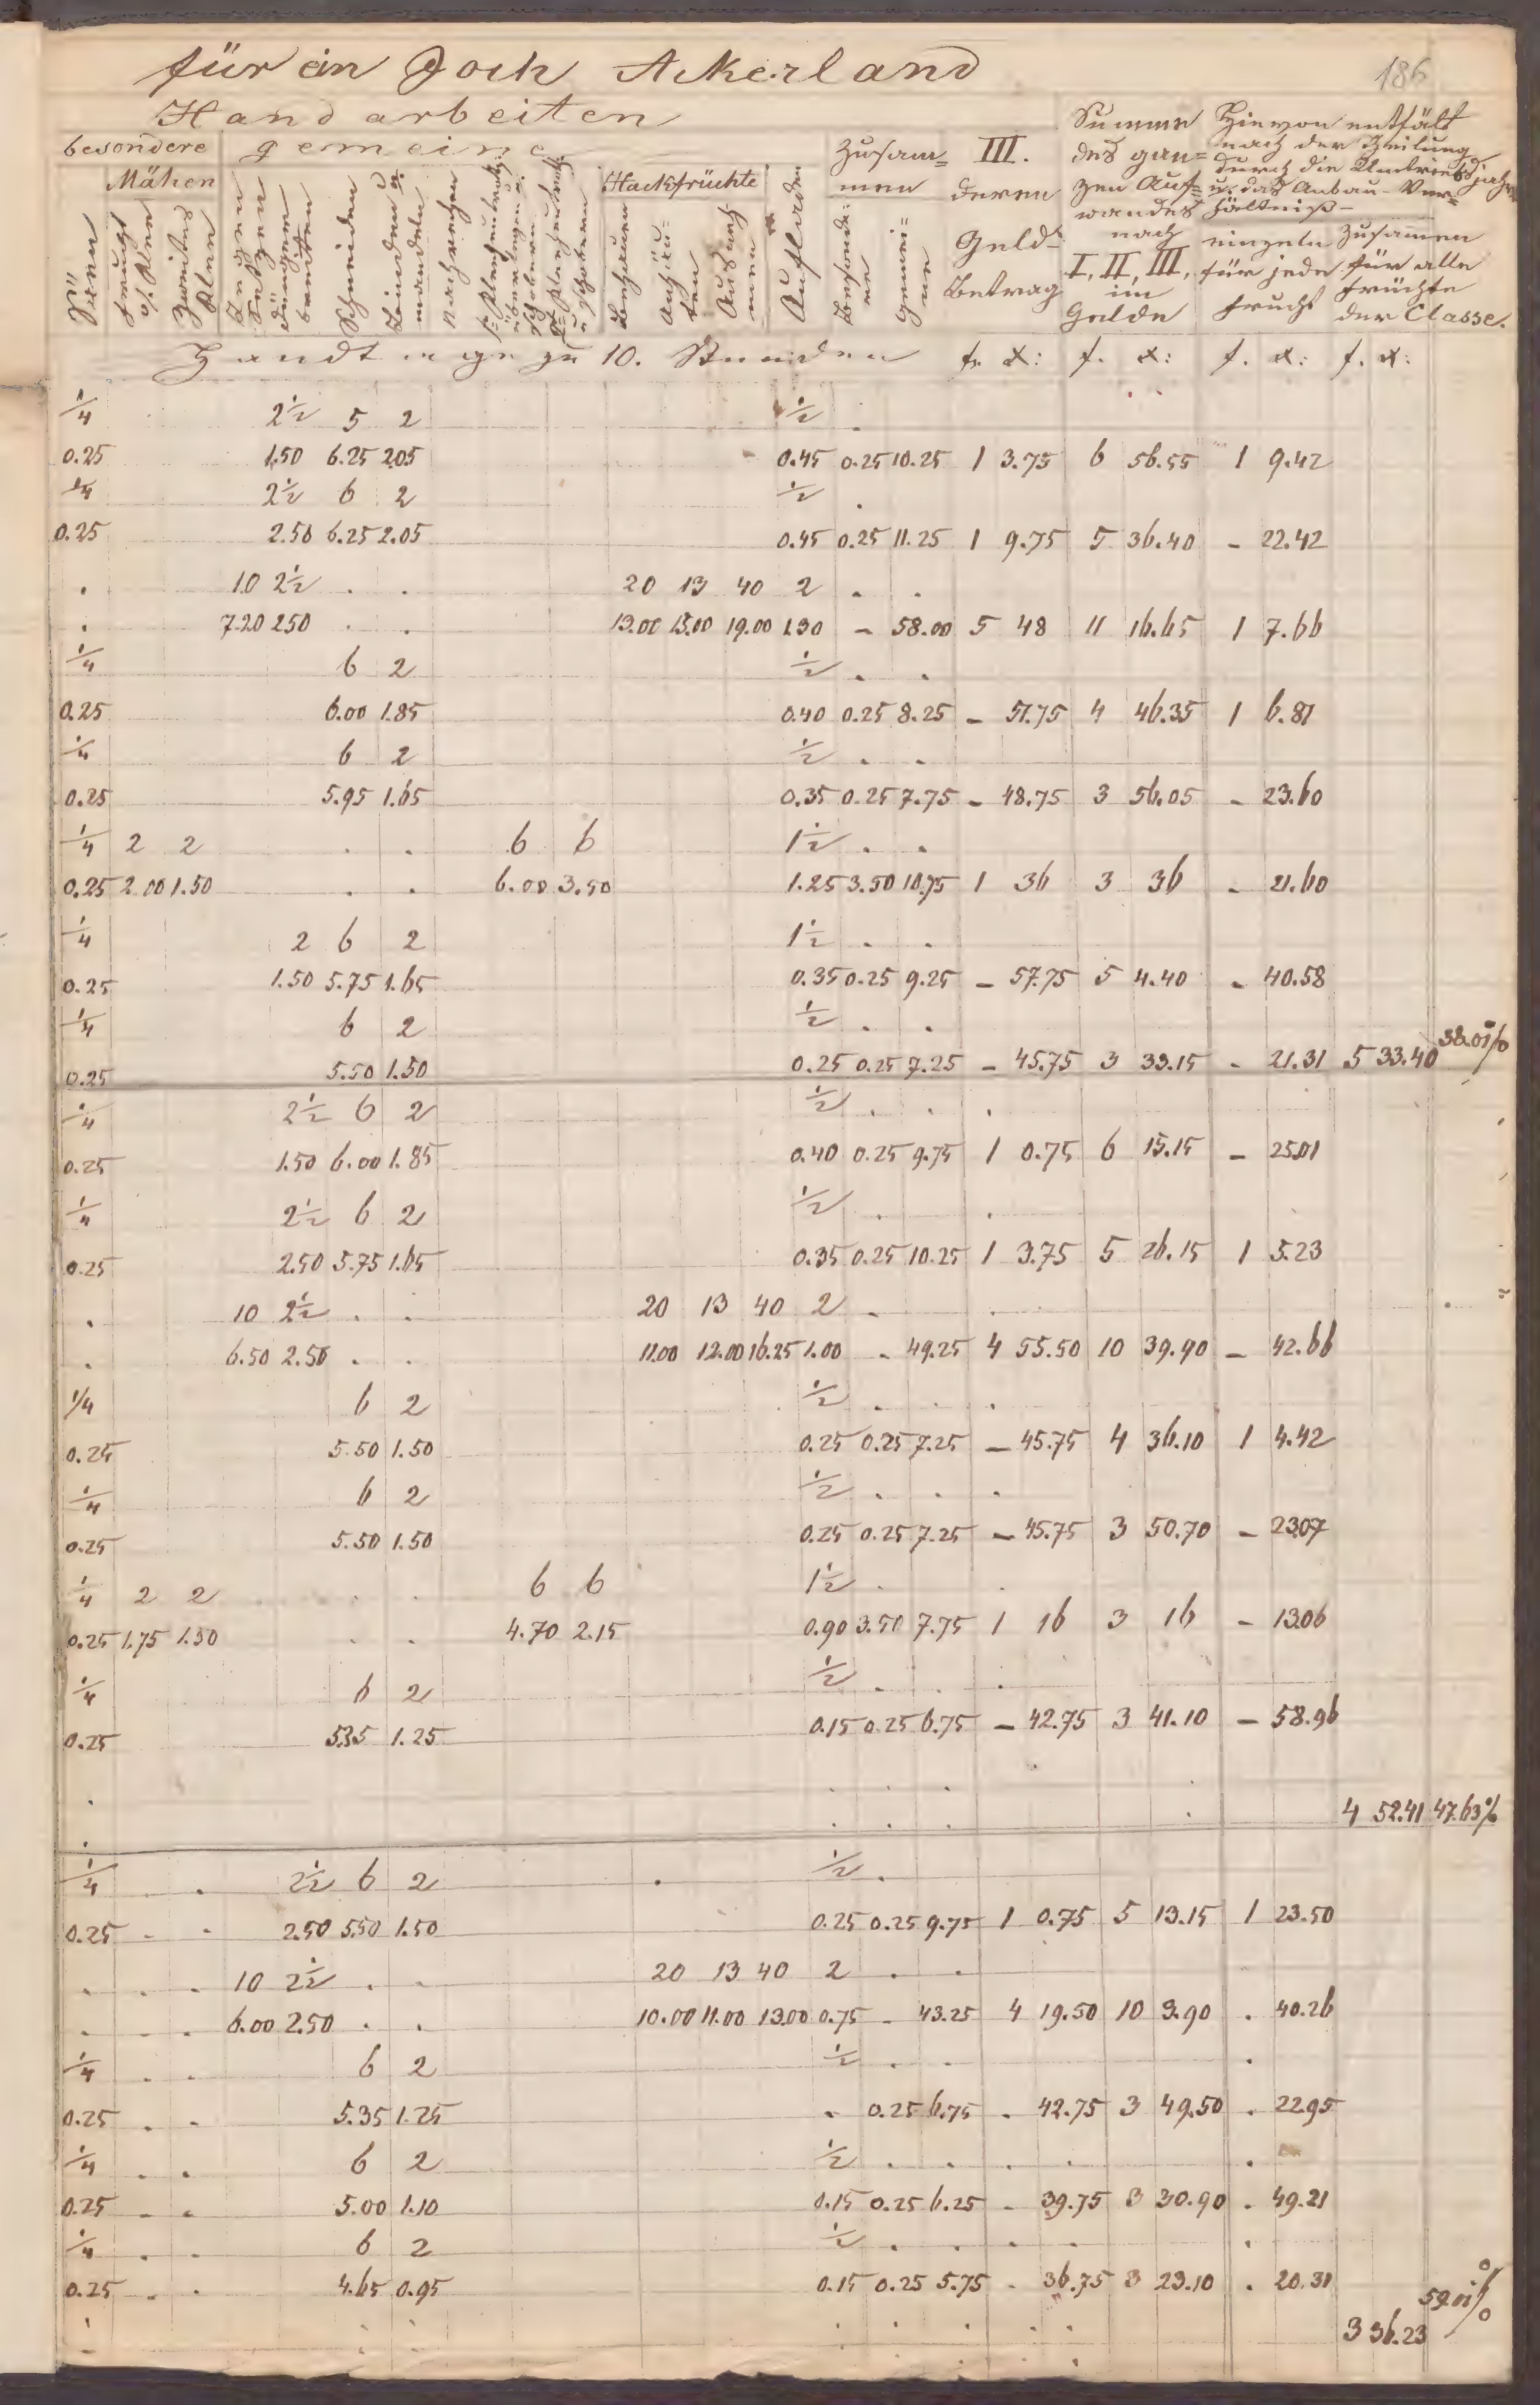 186
für ein Joch Ackerland
Handarbeiten
besondere gemeine Zusam= III. Summe Hievon entfält
Mähen Hackfrüchte men deren des gan= nach der Theilung
zen Auf= durch die Umtriebsjahre
wandes u. das Anbau-Ver=
hältniß
Säen zweites Klee Schneiden Binden u. mandeln nachrechen Behauen Aufladen Besonde= re Gemei= ne
Geld= Betrag nach I, II, III, im Gelde
einzeln für jede Frucht
Zusamen für alle Früchte der Classe.
Handtage zu 10. Stunden f. x: f. x: f. x: f. x:
1/4 2 1/2 5 2 1/2 .
0.25 1.50 6.25 2.05 0.45 0.25 10.25 1 3.75 6 56.55 1 9.42
1/4 2 1/2 6 2 1/2 .
0.25 2.50 6.25 2.05 0.45 0.25 11.25 1 9.75 5 36.40 - 22.42
. 10 2 1/2 . . 20 13 40 2 . .
. 7.20 2.50 . . 13.00 13.00 19.00 1.30 - 58.00 5 48 11 16.65 1 7.66
1/4 6 2 1/2 . .
0.25 6.00 1.85 0.40 0.25 8.25 - 51.75 4 46.35 1 6.81
1/4 6 2 1/2 . .
0.25 5.95 1.65 0.35 0.25 7.75 - 48.75 3 56.05 - 23.60
1/4 2 2 . . 6 6 1 1/2 . .
0.25 2.00 1.50 . . 6.00 3.50 1.25 3.50 10.75 1 36 3 36 - 21.60
1/4 2 6 2 1 1/2 . .
0.25 1.50 5.75 1.65 0.35 0.25 9.25 - 57.75 5 4.40 - 40.58
1/4 6 2 1/2 . .
0.25 5.50 1.50 0.25 0.25 7.25 - 45.75 3 33.15 - 21.31 5 33.40 38.01%
1/4 2 1/2 6 2 1/2 . . .
0.25 1.50 6.00 1.85 0.40 0.25 9.75 1 0.75 6 15.15 - 25.01
1/4 2 1/2 6 2 1/2 . .
0.25 2.50 5.75 1.65 0.35 0.25 10.25 1 3.75 5 26.15 1 5.23
. 10 2 1/2 . . 20 13 40 2 . .
. 6.50 2.50 . . 11.00 12.00 16.25 1.00 - 49.25 4 55.50 10 39.90 - 42.66
1/4 6 2 1/2 . . .
0.25 5.50 1.50 0.25 0.25 7.25 - 45.75 4 36.10 1 4.42
1/4 6 2 1/2 . . .
0.25 5.50 1.50 0.25 0.25 7.25 - 45.75 3 50.70 - 23.07
1/4 2 2 . . 6 6 1 1/2 . .
0.25 1.75 1.50 . . 4.70 2.15 0.90 3.50 7.75 1 16 3 16 - 13.06
1/4 6 2 1/2 . . .
0.25 5.35 1.25 0.15 0.25 6.75 - 42.75 3 41.10 - 58.96
. . . . .
. . . . . 4 52.41 47.63%
1/4 . . 2 1/2 6 2 . 1/2 .
0.25 - . 2.50 5.50 1.50 0.25 0.25 9.75 1 0.75 5 13.15 1 23.50
. . . 10 2 1/2 . . 20 13 40 2 . .
. . . 6.00 2.50 . . 10.00 11.00 13.00 0.75 - 43.25 4 19.50 10 3.90 . 40.26
1/4 . . 6 2 1/2 . . .
0.25 . . 5.35 1.25 . 0.25 6.75 . 42.75 3 49.50 . 22.95
1/4 . . 6 2 1/2 . . . . .
0.25 . . 5.00 1.10 0.15 0.25 6.25 - 39.75 3 30.90 . 49.21
1/4 . . 6 2 1/2 . . . . .
0.25 . . 4.65 0.95 0.15 0.25 5.75 . 36.75 3 23.10 . 20.31
59.01%
3 36.23